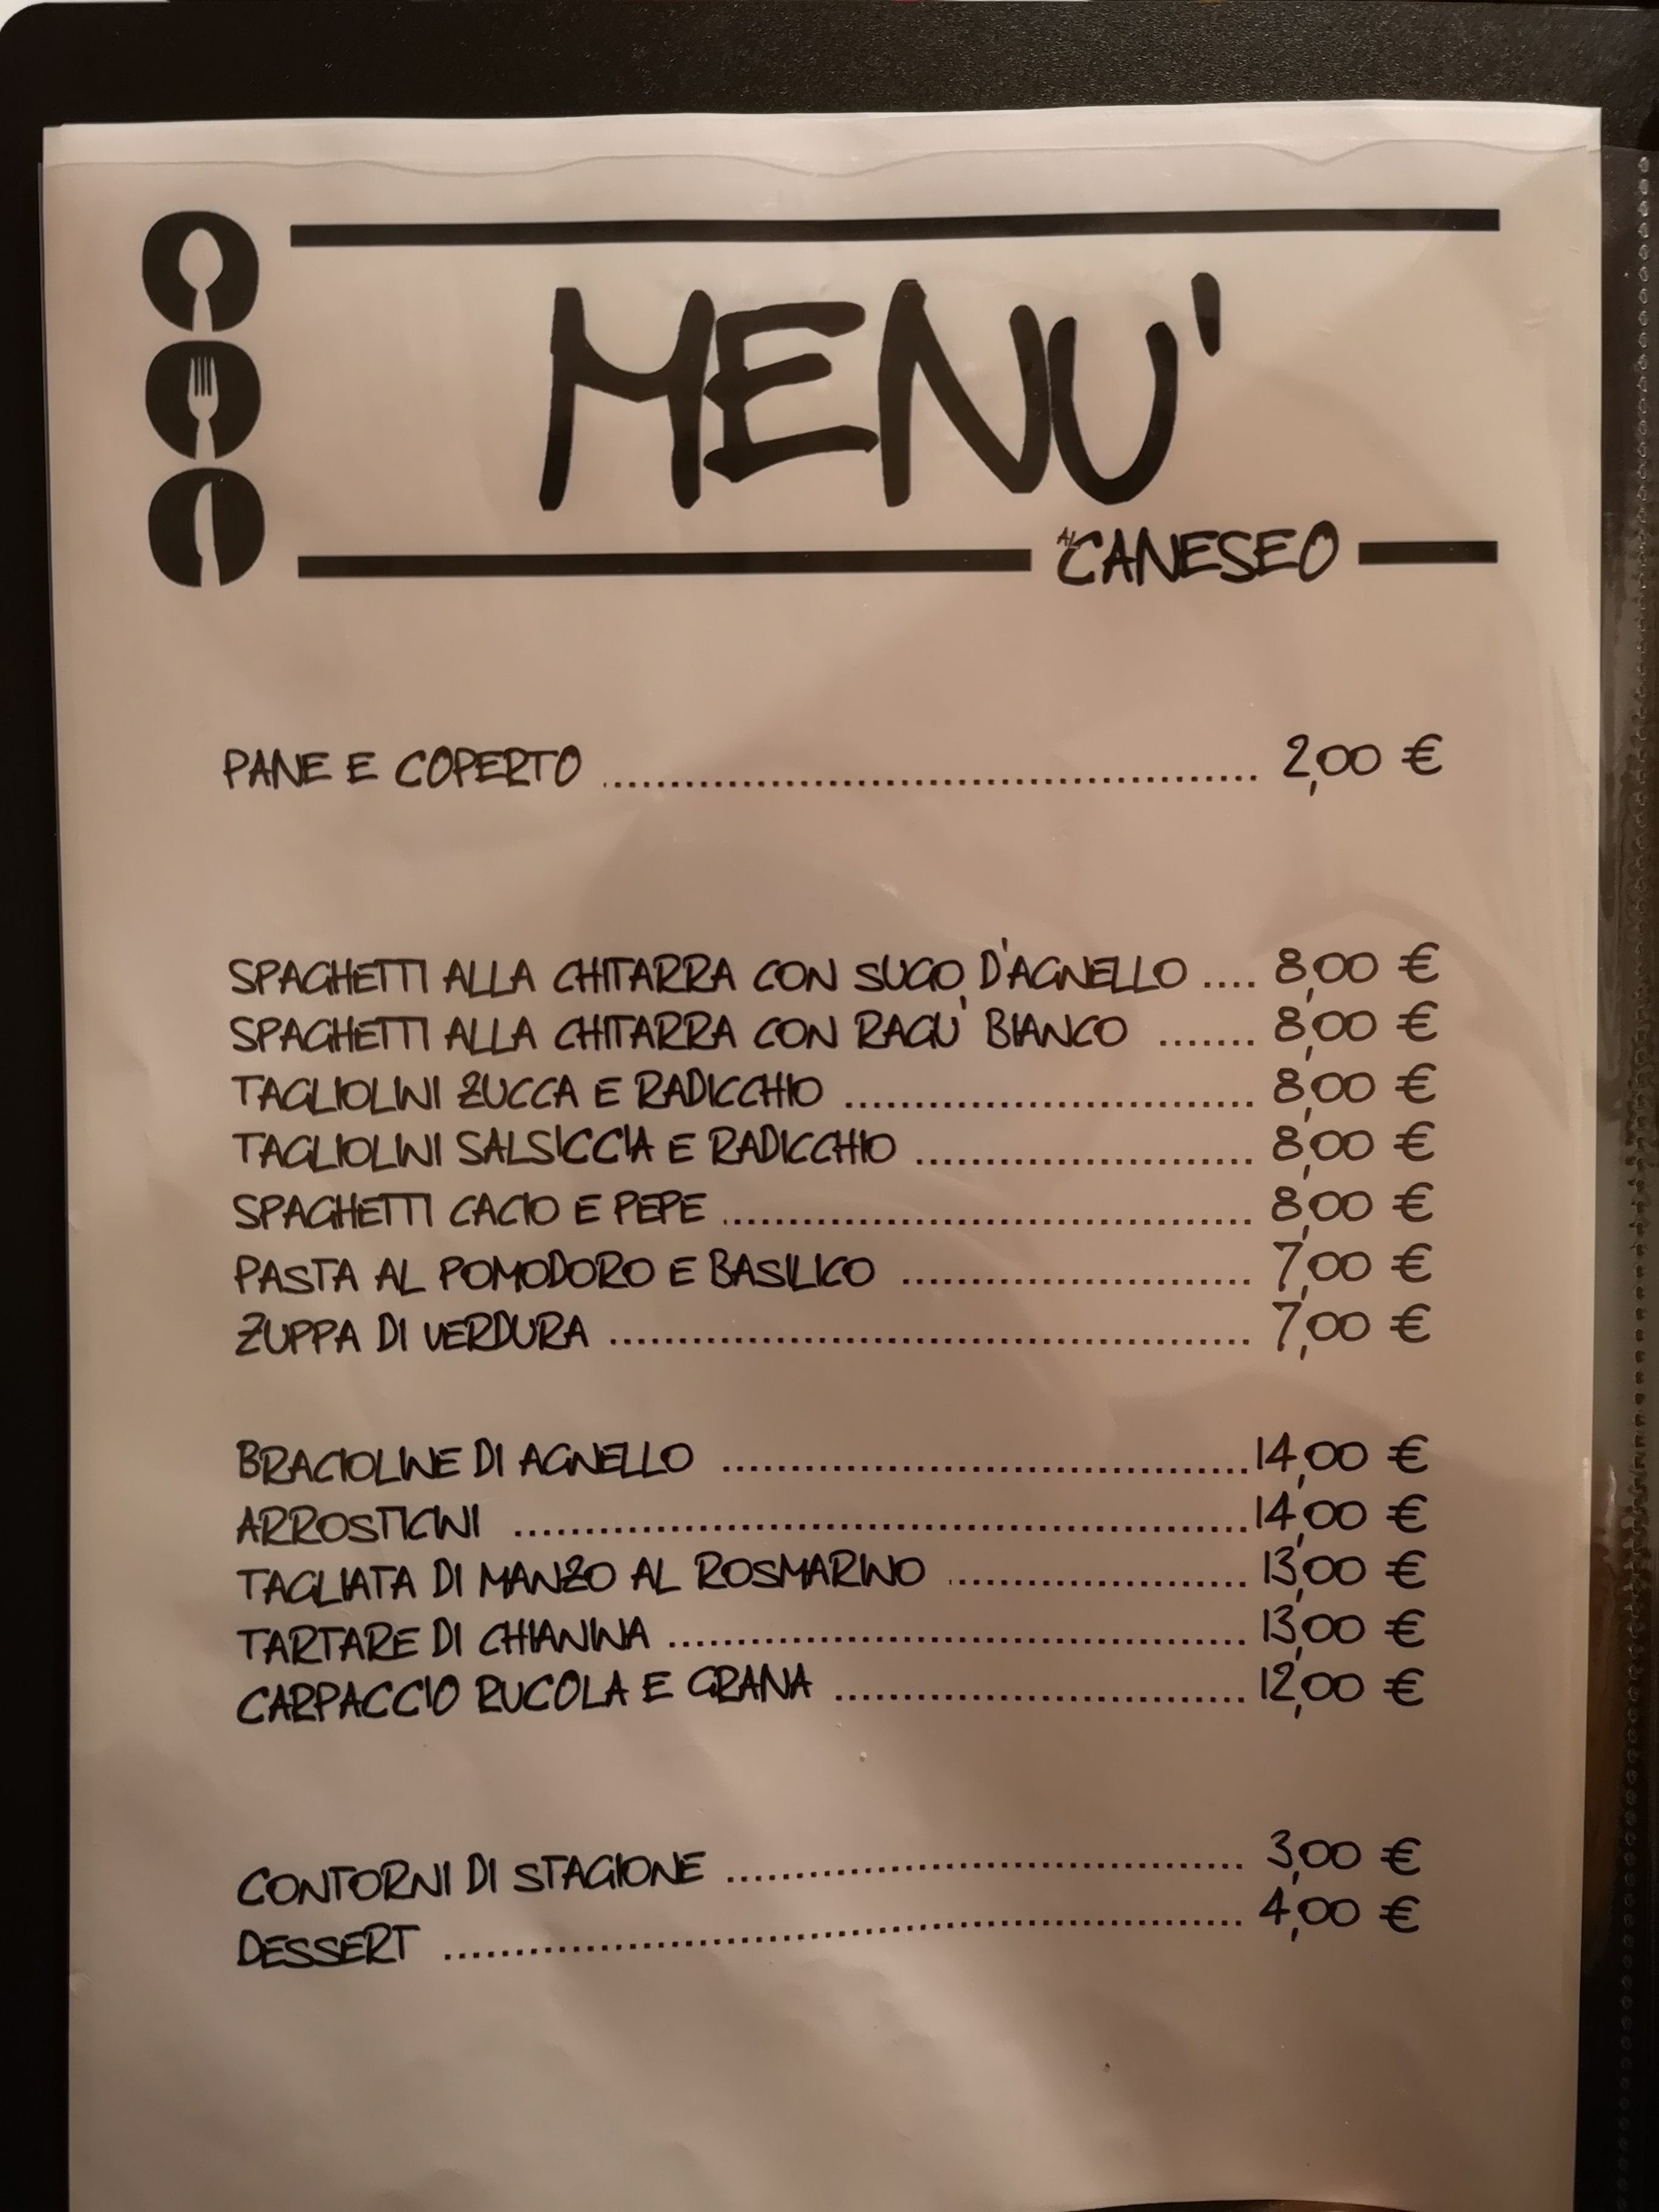 MENU'
AL CANESEO
PANE E COPERTO ........ 2,00 €
SPAGHETTI ALLA CHITARRA CON SUGO D'AGNELLO .... 8,00 €
SPAGHETTI ALLA CHITARRA CON RAGU' BIANCO ....... 8,00 €
TAGLIOLINI ZUCCA E RADICCHIO ........ 8,00 €
TAGLIOLINI SALSICCIA E RADICCHIO ........ 8,00 €
SPAGHETTI CACIO E PEPE ........ 8,00 €
PASTA AL POMODORO E BASILICO ........ 7,00 €
ZUPPA DI VERDURA ........ 7,00 €
BRACIOLINE DI AGNELLO ........ 14,00 €
ARROSTICINI ........ 14,00 €
TAGLIATA DI MANZO AL ROSMARINO ........ 13,00 €
TARTARE DI CHIANINA ........ 13,00 €
CARPACCIO RUCOLA E GRANA ........ 12,00 €
CONTORNI DI STAGIONE ........ 3,00 €
DESSERT ........ 4,00 €